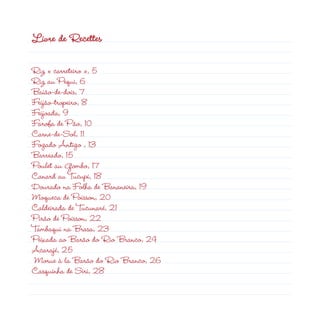 Livre de Recettes
Riz « carreteiro », 5
Riz au Pequi, 6
Baião-de-dois, 7
Feijão-tropeiro, 8
Feijoada, 9
Farofa de Pão, 10
Carne-de-Sol, 11
Fogado Antigo , 13
Barreado, 15
Poulet au Gombo, 17
Canard au Tucupi, 18
Dourado na Folha de Bananeira, 19
Moqueca de Poisson, 20
Caldeirada de Tucunaré, 21
Pirão de Poisson, 22
Tambaqui na Brasa, 23
Peixada ao Barão do Rio Branco, 24
Acarajé, 25
Morue à la Barão do Rio Branco, 26
Casquinha de Siri, 28